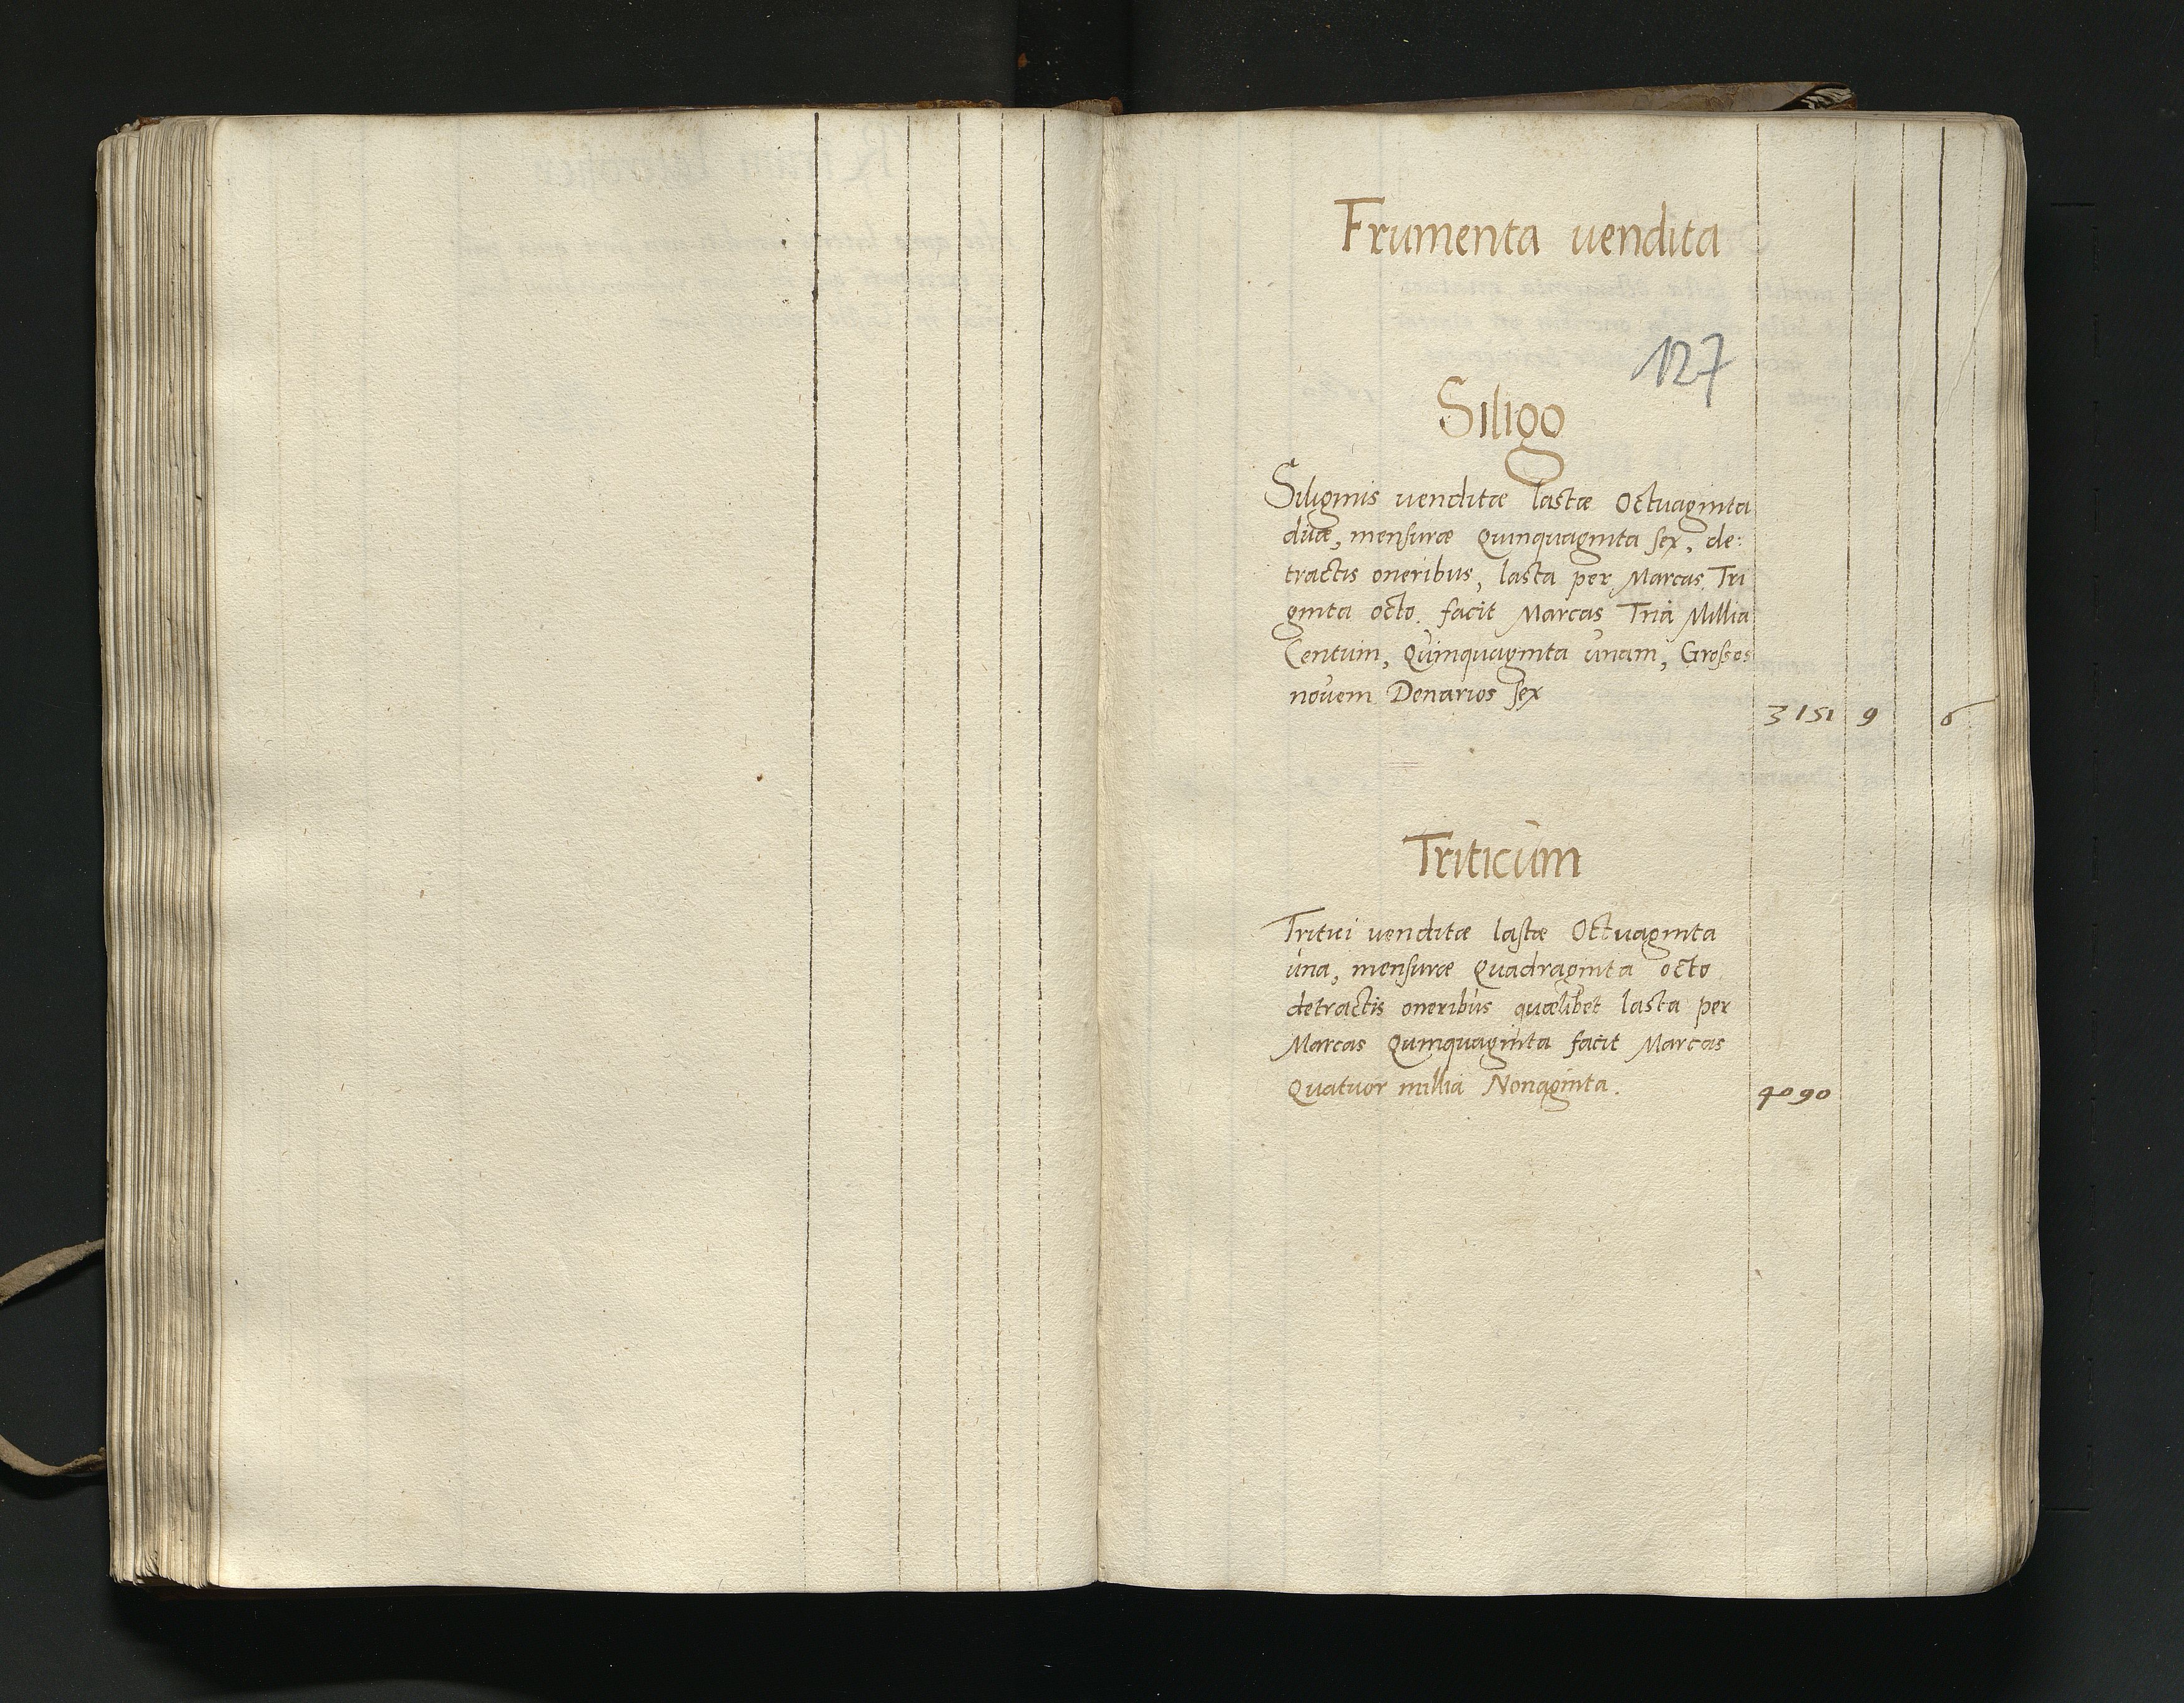 Frumenta vendita
127
Siligo
Siliginis venditæ lastæ Octuaginta
duæ, mensuræ Quinquaginta sex, de:
tractis oneribus, lasta per Marcas Tri
ginta octo. facit Marcas Tria Millia
Centum, Quinquaginta unam, Grossos
novem Denarios sex
3151 9 6
Triticum
Tritici venditæ lastæ Octuaginta
una, mensuræ Quadraginta octo
detractis oneribus quælibet lasta per
Marcas Quinquaginta facit Marcas
Quatuor millia Nonaginta.
4090